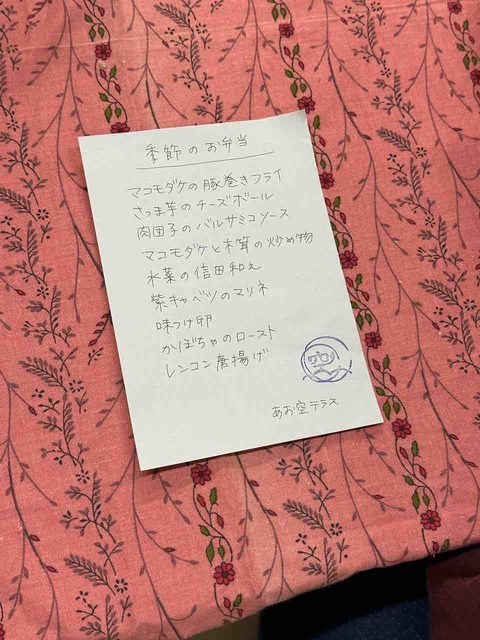 季節のお弁当
マコモダケの豚巻きフライ
さつま芋のチーズボール
肉団子のバルサミコソース
マコモダケと木茸の炒め物
水菜の信田和え
紫キャベツのマリネ
味つけ卵
かぼちゃのロースト
レンコン唐揚げ
空
あお空テラス